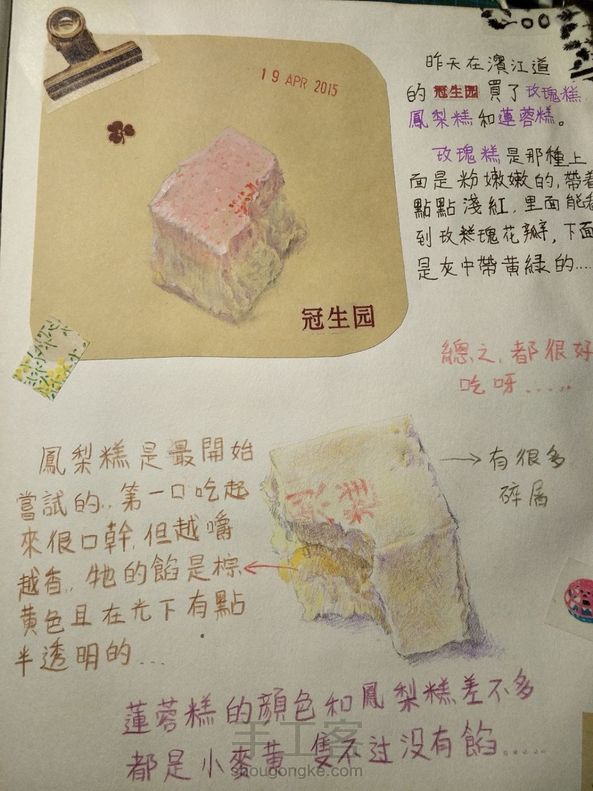 19 APR 2015
冠生园
昨天在濱江道
的冠生园買了玫瑰糕,
鳳梨糕和蓮蓉糕。
玫瑰糕是那種上
面是粉嫩嫩的,帶着
點點淺紅,里面能看
到玫糕瑰花瓣,下面
是灰中帶黄綠的....
總之,都很好
吃呀.....
有很多
碎屑
鳳梨糕是最開始
嘗試的..第一口吃起
來很口幹,但越嚼
越香,.牠的餡是棕
黄色且在光下有點
半透明的...
蓮蓉糕的顔色和鳳梨糕差不多
都是小麥黄 隻不过没有餡.....
手工客
shougongke.com